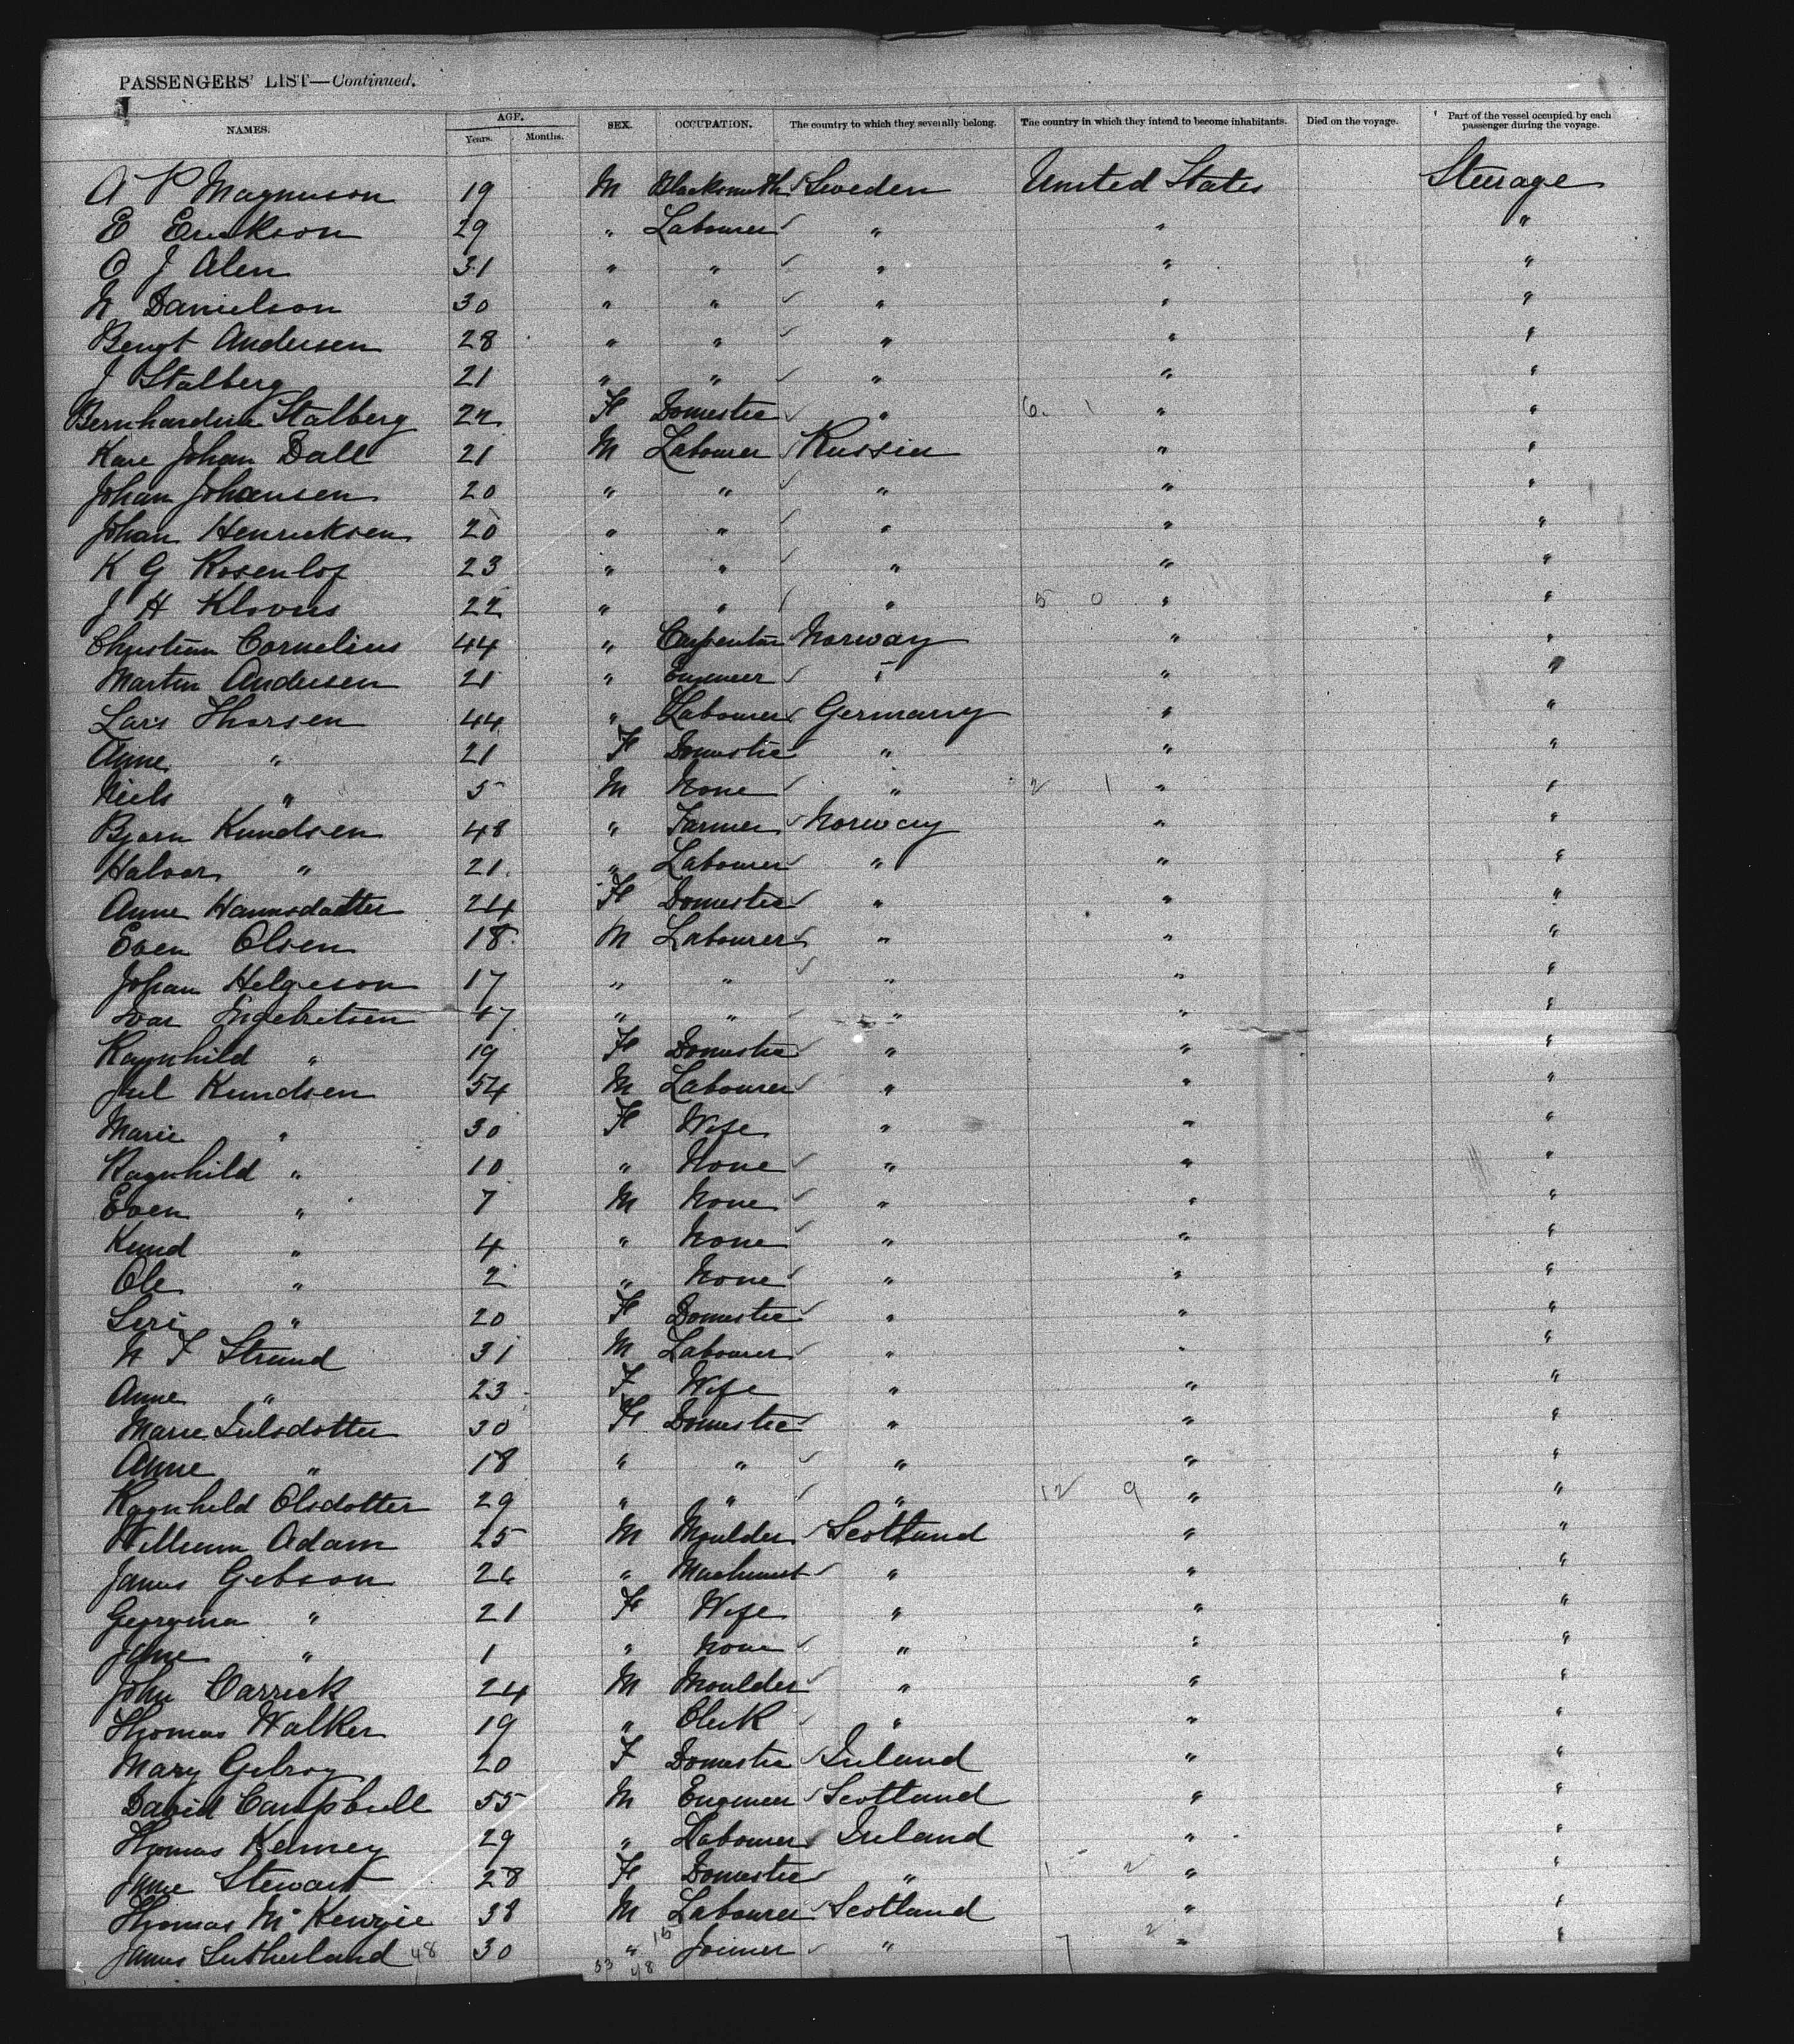 PASSENGERS' LIST—Continued.
NAMES. AGE. Years. Months. SEX. OCCUPATION. The country to which they severally belong. The country in which they intend to become inhabitants. Died on the voyage. Part of the vessel occupied by each passenger during the voyage.
A P Magnuson 19 M Blacksmith Sweden United States Steerage
E Erickson 29 " Labourer " " "
O J Alen 31 " " " " "
N Danielson 30 " " " " "
Bengt Andersen 28 " " " " "
J Stalberg 21 " " " " "
Bernhardina Stalberg 22 F Domestic " 6 1 " "
Karl Johan Dall 21 M Labourer Russia " "
Johan Johansen 20 " " " " "
Johan Henricksen 20 " " " " "
K G Rosenlof 23 " " " " "
J H Klovus 22 " " " 5 0 " "
Christian Cornelius 44 " Carpenter Norway " "
Martin Andersen 21 " Engineer " " "
Lars Thorsen 44 " Labourer Germany " "
Anne " 21 F Domestic " " "
Niels " 5 M None " 2 1 " "
Bjorn Kundsen 48 " Farmer Norway " "
Halvor " 21 " Labourer " " "
Anne Hannsdatter 24 F Domestic " " "
Even Olsen 18 M Labourer " " "
Johan Helgeson 17 " " " " "
Ivar Ingebretsen 47 " " " " "
Ragnhild " 19 F Domestic " " "
Jul Kundsen 54 M Labourer " " "
Marie " 30 F Wife " " "
Ragnhild " 10 " None " " "
Even " 7 M None " " "
Kund " 4 " None " " "
Ole " 2 " None " " "
Siri " 20 F Domestic " " "
N T Strand 31 M Labourer " " "
Anne " 23 F Wife " " "
Marie Julsdotter 30 F Domestic " " "
Anne " 18 " " " " "
Ragnhild Olsdotter 29 " " " 12 9 " "
William Adam 25 M Moulder Scotland " "
James Gibson 26 " Machinist " " "
Georgina " 21 F Wife " " "
Jane " 1 " None " " "
John Carrick 24 M Moulder " " "
Thomas Walker 19 " Clerk " " "
Mary Gilroy 20 F Domestic Ireland " "
David Campbell 55 M Engineer Scotland " "
Thomas Kenney 29 " Labourer Ireland " "
Jane Stewart 28 F Domestic " 1 2 " "
Thomas McKenzie 38 M Labourer Scotland " "
James Sutherland 48 30 " 15 Joiner " 7 2 " "
33 48